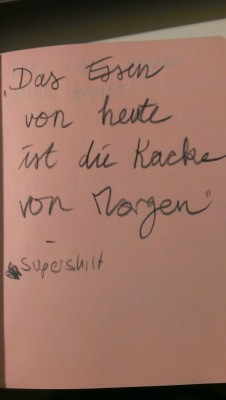 „Das Essen
von heute
ist die Kacke
von Morgen"
-
Supershit